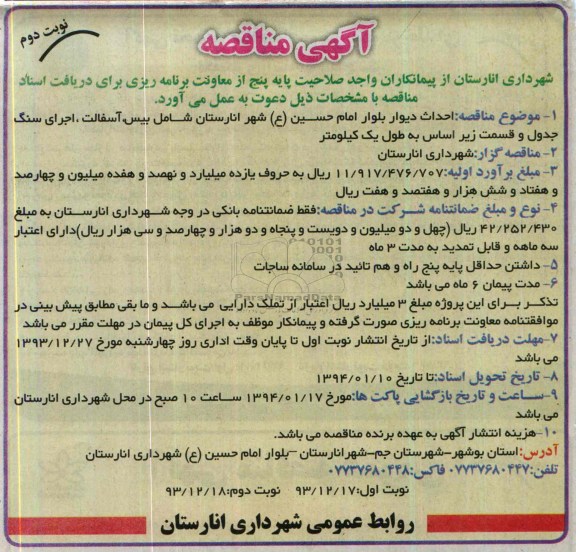 نوبت دوم
آگهی مناقصه
شهرداری انارستان از پیمانکاران واجد صلاحیت پایه پنج از معاونت برنامه ریزی برای دریافت اسناد
مناقصه با مشخصات ذیل دعوت به عمل می آورد.
۱- موضوع مناقصه:احداث دیوار بلوار امام حسین (ع) شهر انارستان شامل بیس،آسفالت ،اجرای سنگ
جدول و قسمت زیر اساس به طول یک کیلومتر
۲-مناقصه گزار:شهرداری انارستان
۳- مبلغ برآورد اولیه:۱۱/۹۱۷/۴۷۶/۷۰۷ ریال به حروف یازده میلیارد و نهصد و هفده میلیون و چهارصد
و هفتاد و شش هزار و هفتصد و هفت ریال
۴- نوع و مبلغ ضمانتنامه شرکت در مناقصه:فقط ضمانتنامه بانکی در وجه شهرداری انارستان به مبلغ
۴۲/۲۵۲/۴۳۰ ریال (چهل و دو میلیون و دویست و پنجاه و دو هزار و چهارصد و سی هزار ریال)دارای اعتبار
سه ماهه و قابل تمدید به مدت ۳ ماه
۵- داشتن حداقل پایه پنج راه و هم تائید در سامانه ساجات
۶- مدت پیمان ۶ ماه می باشد
تذکر برای این پروژه مبلغ ۳ میلیارد ریال اعتبار از تملک دارایی می باشد و ما بقی مطابق پیش بینی در
موافقتنامه معاونت برنامه ریزی صورت گرفته و پیمانکار موظف به اجرای کل پیمان در مهلت مقرر می باشد
۷-مهلت دریافت اسناد:از تاریخ انتشار نوبت اول تا پایان وقت اداری روز چهارشنبه مورخ ۱۳۹۳/۱۲/۲۷
می باشد
۸- تاریخ تحویل اسناد:تا تاریخ ۱۳۹۴/۰۱/۱۰
۹-ساعت و تاریخ بازگشایی پاکت ها:مورخ ۱۳۹۴/۰۱/۱۷ ساعت ۱۰ صبح در محل شهرداری انارستان
می باشد
۱۰-هزینه انتشار آگهی به عهده برنده مناقصه می باشد.
آدرس:استان بوشهر-شهرستان جم-شهرانارستان –بلوار امام حسین (ع) شهرداری انارستان
تلفن:۰۷۷۳۷۶۸۰۴۴۷ فاکس:۰۷۷۳۷۶۸۰۴۴۸
نوبت اول:۹۳/۱۲/۱۷ نوبت دوم:۹۳/۱۲/۱۸
روابط عمومی شهرداری انارستان